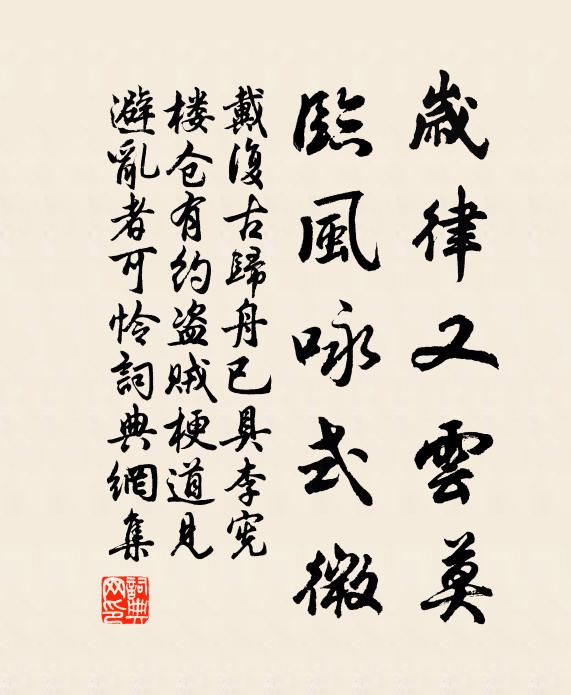 歲律又雲莫
臨風咏式微
戴復古歸舟已具李寃
楼仓有约盗贼梗道見
避亂者可怜詞典網集
詞典网印